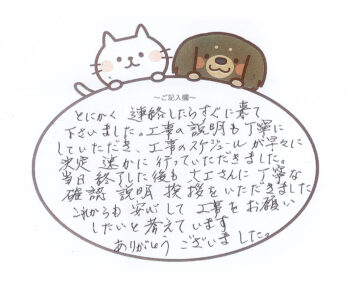 ～ご記入欄～
とにかく 連絡したらすぐに来て
下さいました。工事の説明も丁寧に
していただき、工事のスケジュールが早々に
決定 速かに 行っていただきました。
当日 終了した後も 大工さんに 丁寧な
確認 説明 挨拶をいただきました
これからも 安心して 工事をお願い
したいと考えています
ありがとう ございました。